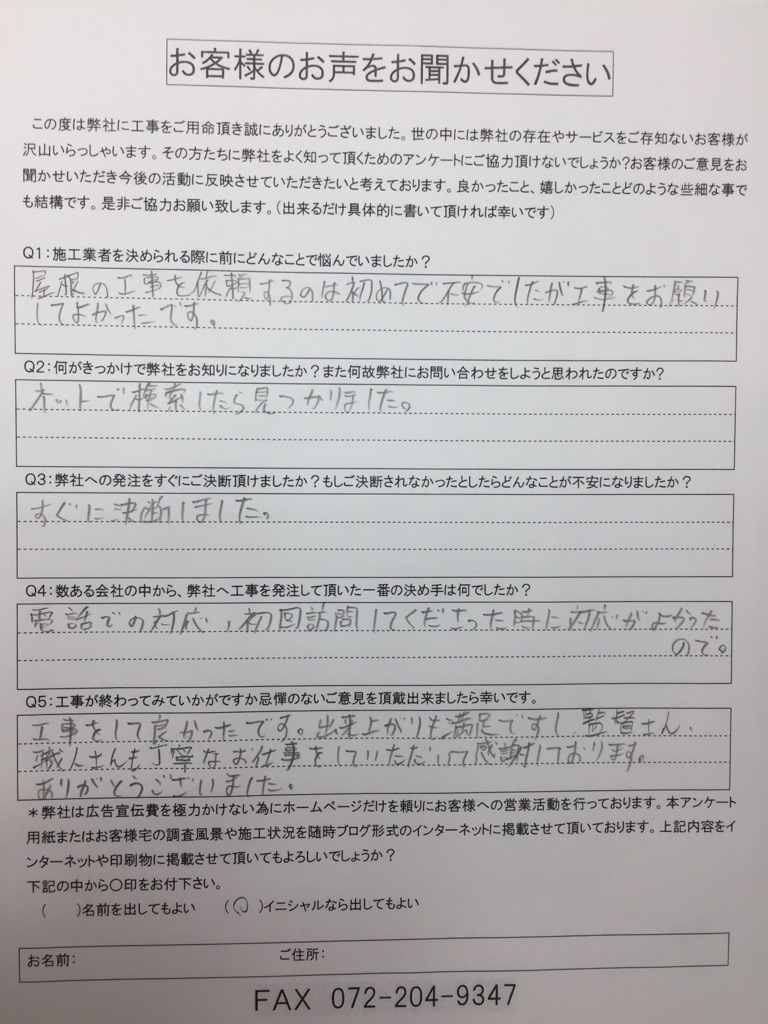 お客様のお声をお聞かせください
この度は弊社に工事をご用命頂き誠にありがとうございました。世の中には弊社の存在やサービスをご存知ないお客様が
沢山いらっしゃいます。その方たちに弊社をよく知って頂くためのアンケートにご協力頂けないでしょうか?お客様のご意見をお
聞かせいただき今後の活動に反映させていただきたいと考えております。良かったこと、嬉しかったことどのような些細な事で
も結構です。是非ご協力お願い致します。(出来るだけ具体的に書いて頂ければ幸いです)
Q1:施工業者を決められる際に前にどんなことで悩んでいましたか?
屋根の工事を依頼するのは初めてで不安でしたが工事をお願い
してよかったです。
Q2:何がきっかけで弊社をお知りになりましたか?また何故弊社にお問い合わせをしようと思われたのですか?
ネットで検索したら見つかりました。
Q3:弊社への発注をすぐにご決断頂けましたか?もしご決断されなかったとしたらどんなことが不安になりましたか?
すぐに決断しました。
Q4:数ある会社の中から、弊社へ工事を発注して頂いた一番の決め手は何でしたか?
電話での対応、初回訪問してくださった時に対応がよかった
ので。
Q5:工事が終わってみていかがですか忌憚のないご意見を頂戴出来ましたら幸いです。
工事をして良かったです。出来上がりも満足ですし、監督さん、
職人さんも丁寧なお仕事をしていただいて感謝しております。
ありがとうございました。
*弊社は広告宣伝費を極力かけない為にホームページだけを頼りにお客様への営業活動を行っております。本アンケート
用紙またはお客様宅の調査風景や施工状況を随時ブログ形式のインターネットに掲載させて頂いております。上記内容をイ
ンターネットや印刷物に掲載させて頂いてもよろしいでしょうか?
下記の中から〇印をお付下さい。
( )名前を出してもよい (〇)イニシャルなら出してもよい
お名前: ご住所:
FAX 072-204-9347